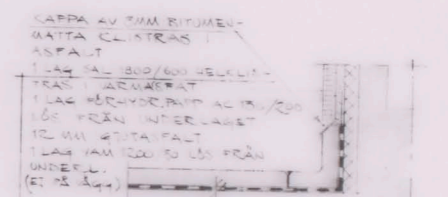 KAPPA AV 3MM BITUMEN-
MATTA CLISTRAS I
ASFALT
1 LAG SAL 1800/600 HELKLIS-
TRAS I VARMASFALT
1 LAG FÖRHYDR.PAPP AL 150/200
LÖS FRÅN UNDERLAGET
12 MM GJUTASFALT
1 LAG YAM 1200 LÖS FRÅN
UNDERL.
(EJ PÅ VÄGG)